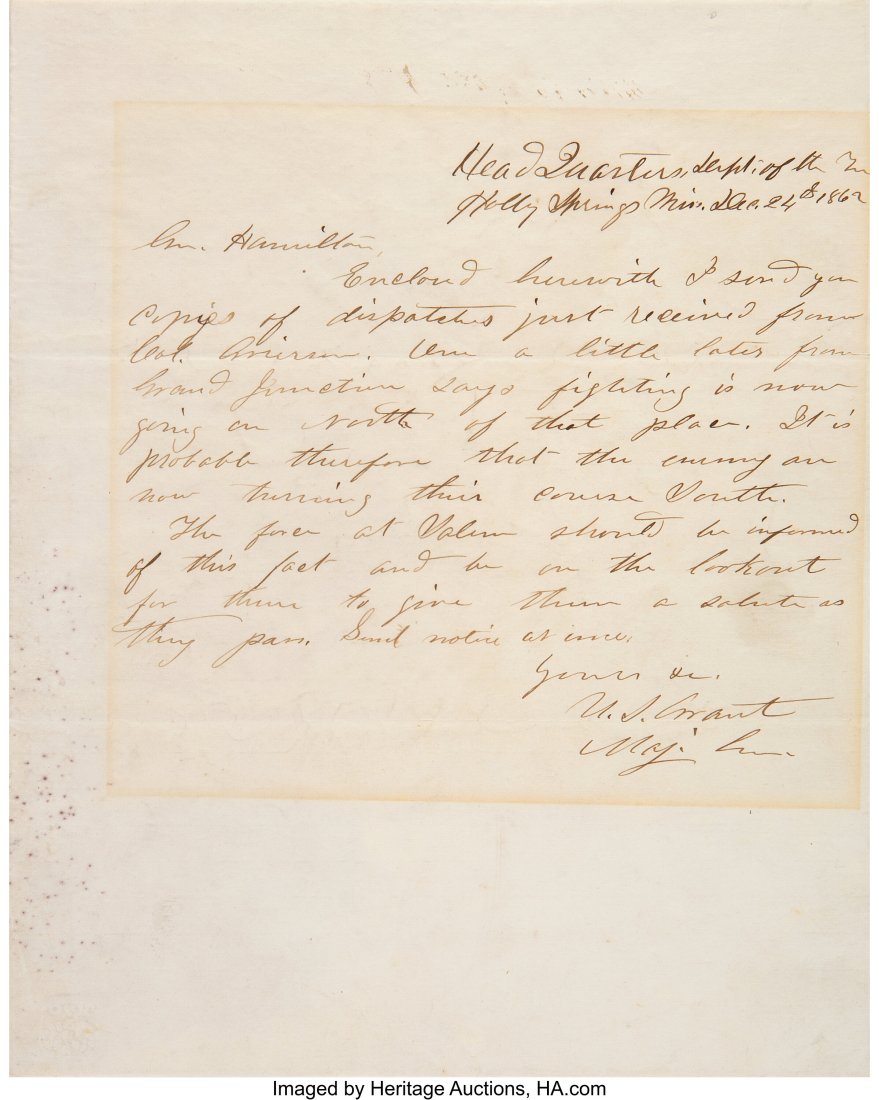 Head Quarters, Dept. of the Ten
Holly Springs Miss. Dec. 24th 1862
Gen. Hamilton,
Enclosed herewith I send you
copies of dispatches just received from
Col. Grierson. One a little later from
Grand Junction says fighting is now
going on North of that place. It is
probable therefore that the enemy are
now turning their course South.
The force at Salem should be informed
of this fact and be on the lookout
for them to give them a salute as
they pass. Send notice at once.
Yours &c.
U. S. Grant
Maj. Gen.
Imaged by Heritage Auctions, HA.com